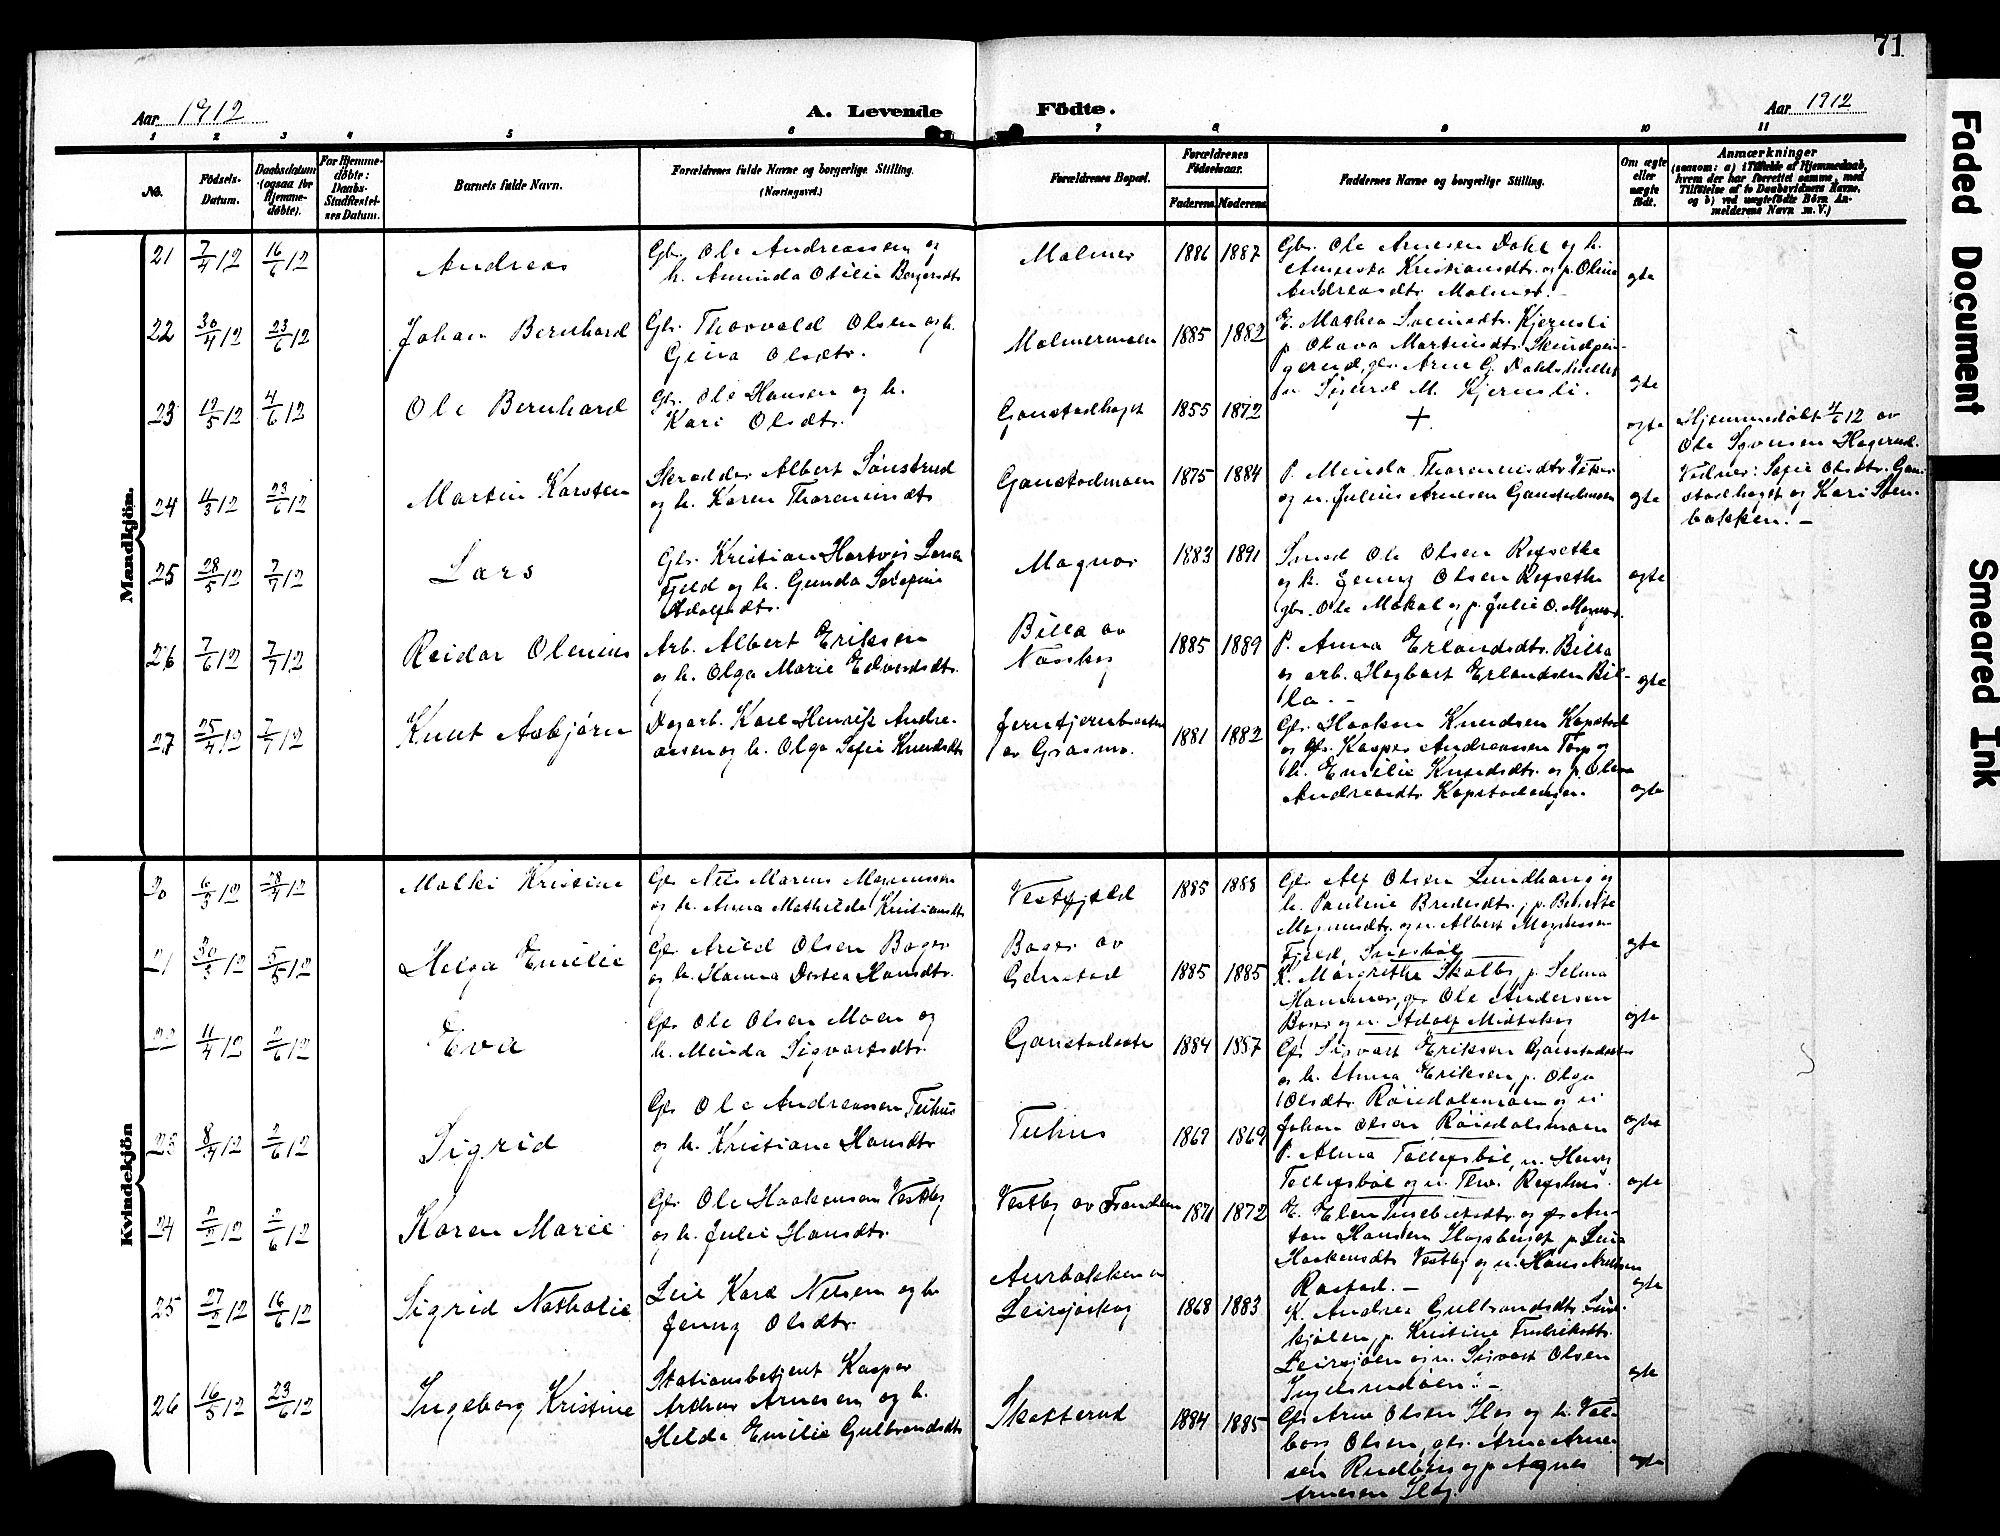 71
Aar 1912
A. Levende Födte.
Aar 1912
1 2 3 4 5 6 7 8 9 10 11
No.
Födsels-
Datum.
Daabsdatum
(ogsaa for
Hjemme-
døbte).
For Hjemme-
døbte:
Daabs-
Stadfæstel-
ses Datum.
Barnets fulde Navn.
Forældrenes fulde Navne og borgerlige Stilling.
(Næringsvei.)
Forældrenes Bopæl.
Forældrenes
Födselsaar.
Faderens. Moderens.
Faddernes Navne og borgerlige Stilling.
Om ægte
eller
uægte
født.
Anmærkninger
(saasom: a) i Tilfælde af Hjemmedaab,
hvem der har forrettet samme, med
Tilföielse af to Daabsvidners Navne,
og b) ved uægtefödte Börn An-
melderens Navn m. V.)
Mandkjön.
21 7/4 12 16/6 12
Andreas
Gbr. Ole Andreassen og
h. Aminda Otilie Borgersdtr
Malmer
1886 1887
Gbr. Ole Arnesen Dahl og h.
Kristiansdtr. og p. Oline
Andreasdtr. Malmer.-
egte
22 30/4 12 23/6 12
Johan Bernhard
Gbr. Thorvald Olsen og h.
Gina Olsdtr.
Malmermoen
1885 1882
E. Mathea Svensdtr. Kjernsli
p. Olava Martinsdtr.
gbr. Arne G.
u. Sigurd M. Kjernsli.
egte
23 12/5 12 4/6 12
Ole Bernhard
Gbr. Ole Hansen og h.
Kari Olsdtr.
Ganstadhaget
1855 1872
+
egte
Hjemmedøbt 4/6 12 av
Ole Syversen Hagerud.
Vidner: Sofie Olsdtr. Gan-
stadhaget og Kari Sten-
bakken.-
24 4/3 12 23/6 12
Martin Karsten
Skrædder Albert Sønsterud
og h. Karen Thoresensdtr
Ganstadmoen
1875 1884
P. Minda
og u. Julius Arnesen Ganstadmoen
egte
25 28/5 12 7/7 12
Lars
Gbr. Kristian Hartvig Larsen
Fjeld og h. Gunda Serfine
Adolfsdtr.
Magnor
1883 1891
Smed Ole Olsen Refsethe
og h. Jenny Olsen Refsethe
gbr. Ole Mokal og p. Julie O. Magnor.
egte
26 7/6 12 7/7 12
Reidar Olenius
Arb. Albert Eriksen
og h. Olga Marie Edvardsdtr.
Billa av
Næsskog
1885 1889
P. Anna Erlandsdtr. Billa
og arb. Hagbart Erlandsen Bil-
la.-
egte
27 25/4 12 7/7 12
Knut Asbjørn
Dagarb. Karl Henrik Andre-
assen og h. Olga Sofie Knudsdtr
av Grasmo.
1881 1882
Gbr. Haakon Knudsen Kapstad
og gbr. Kasper Andreassen Torp og
h. Emilie Knudsdtr. og p. Olava
Andreasdtr. Kapstadengen.
egte
Kvindekjön
20 6/3 12 28/4 12
Malki Kristine
Gbr. Nils Marius Magnussen
og h. Anna Mathilde Kristiansdtr
Vestfjeld
1885 1888
Gbr. Alf Olsen Lundhaug og
h. Pauline Bredesdtr., p.
Magnusdtr. og u. Albert Magnussen
Fjeld,
egte
21 30/3 12 5/5 12
Helga Emilie
Gbr. Arild Olsen Boger
og h. Hanna Dortea Hansdtr.
Boger av
Ganstad
1885 1885
K. Margrethe Skotby, p. Selma
Hammer, gbr. Ole Andersen
Boger og u. Adolf Midtskog
egte
22 11/4 12 2/6 12
Eva
Gbr. Ole Olsen Moen og
h. Minda Sigvartsdtr.
Ganstadsæte
1884 1887
Gbr. Sigvart Eriksen Ganstadsæter
og h. Anna Eriksen, p. Olga
Olsdtr. Røisdalsmoen og u
Johan Olsen Røisdalsmoen
egte
23 8/4 12 2/6 12
Sigrid
Gbr. Ole Andreassen Tuhus
og h. Kristiane Hansdtr
Tuhus
1869 1869
P. Alma Tollefsbøl, u. Hans
Tollefsbøl og u. Thv. Refshus.
egte
24 2/2 12 2/6 12
Karen Marie
Gbr. Ole Haakensen Vestby
og h. Julie Hansdtr.
Vestby av
1871 1872
E. Elen og gbr. An-
ton Hansen Hagberget p.
Haakensdtr Vestby og u. Hans
Rastad.-
egte
25 27/2 12 16/6 12
Sigrid Nathalie
Leil. Karl Nilsen og h.
Jenny Olsdtr.
Aurbakken av
Leirsjøskog
1868 1883
K. Andrea Gulbrandsdtr.
kjølen, p. Kristine Fredriksdtr.
Leirsjøen og u. Sigvart Olsen
Ingelsrudøien.-
egte
26 16/5 12 23/6 12
Ingeborg Kristine
Stationsbetjent Kasper
Arthur Arnesen og h.
Hilda Emilie Gulbrandsdtr
Skotterud
1884 1885
Gbr. Arne Olsen og h. Val-
borg Olsen, gbr. Arne Arne-
sen Rudberg og p. Agnes
Arnesen
egte
Faded Document
Smeared Ink